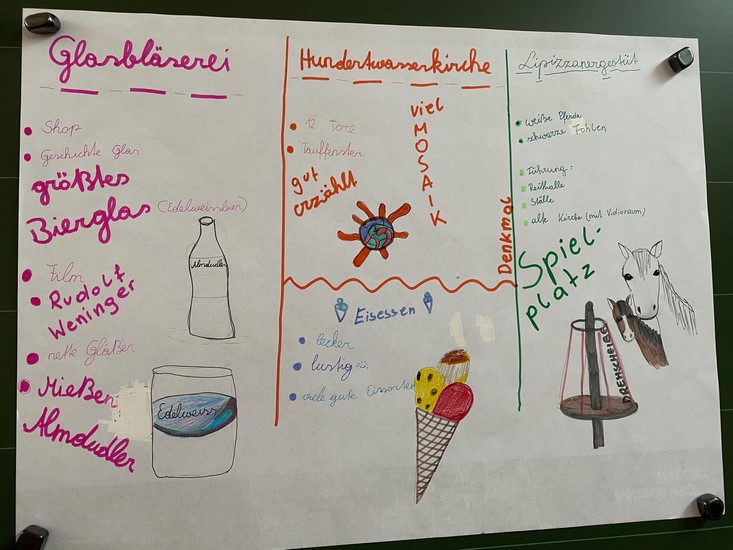 Glasbläserei
Shop
Geschichte Glas
größtes
Bierglas (Edelweissbier)
Almdudler
Film
Rudolf
Weninger
nette Gläser
Almdudler
Edelweiss
Hundertwasserkirche
12 Tore
Tauffenster
gut
erzählt
viel
MOSAIK
Denkmal
Eisessen
lecker
lustig
viele gute Eissorten
Lipizzanergestüt
weiße Pferde
schwarze Fohlen
Führung:
Reithalle
Ställe
alte Kirche (mit Vidioraum)
Spiel-
platz
DREHSCHEIBE